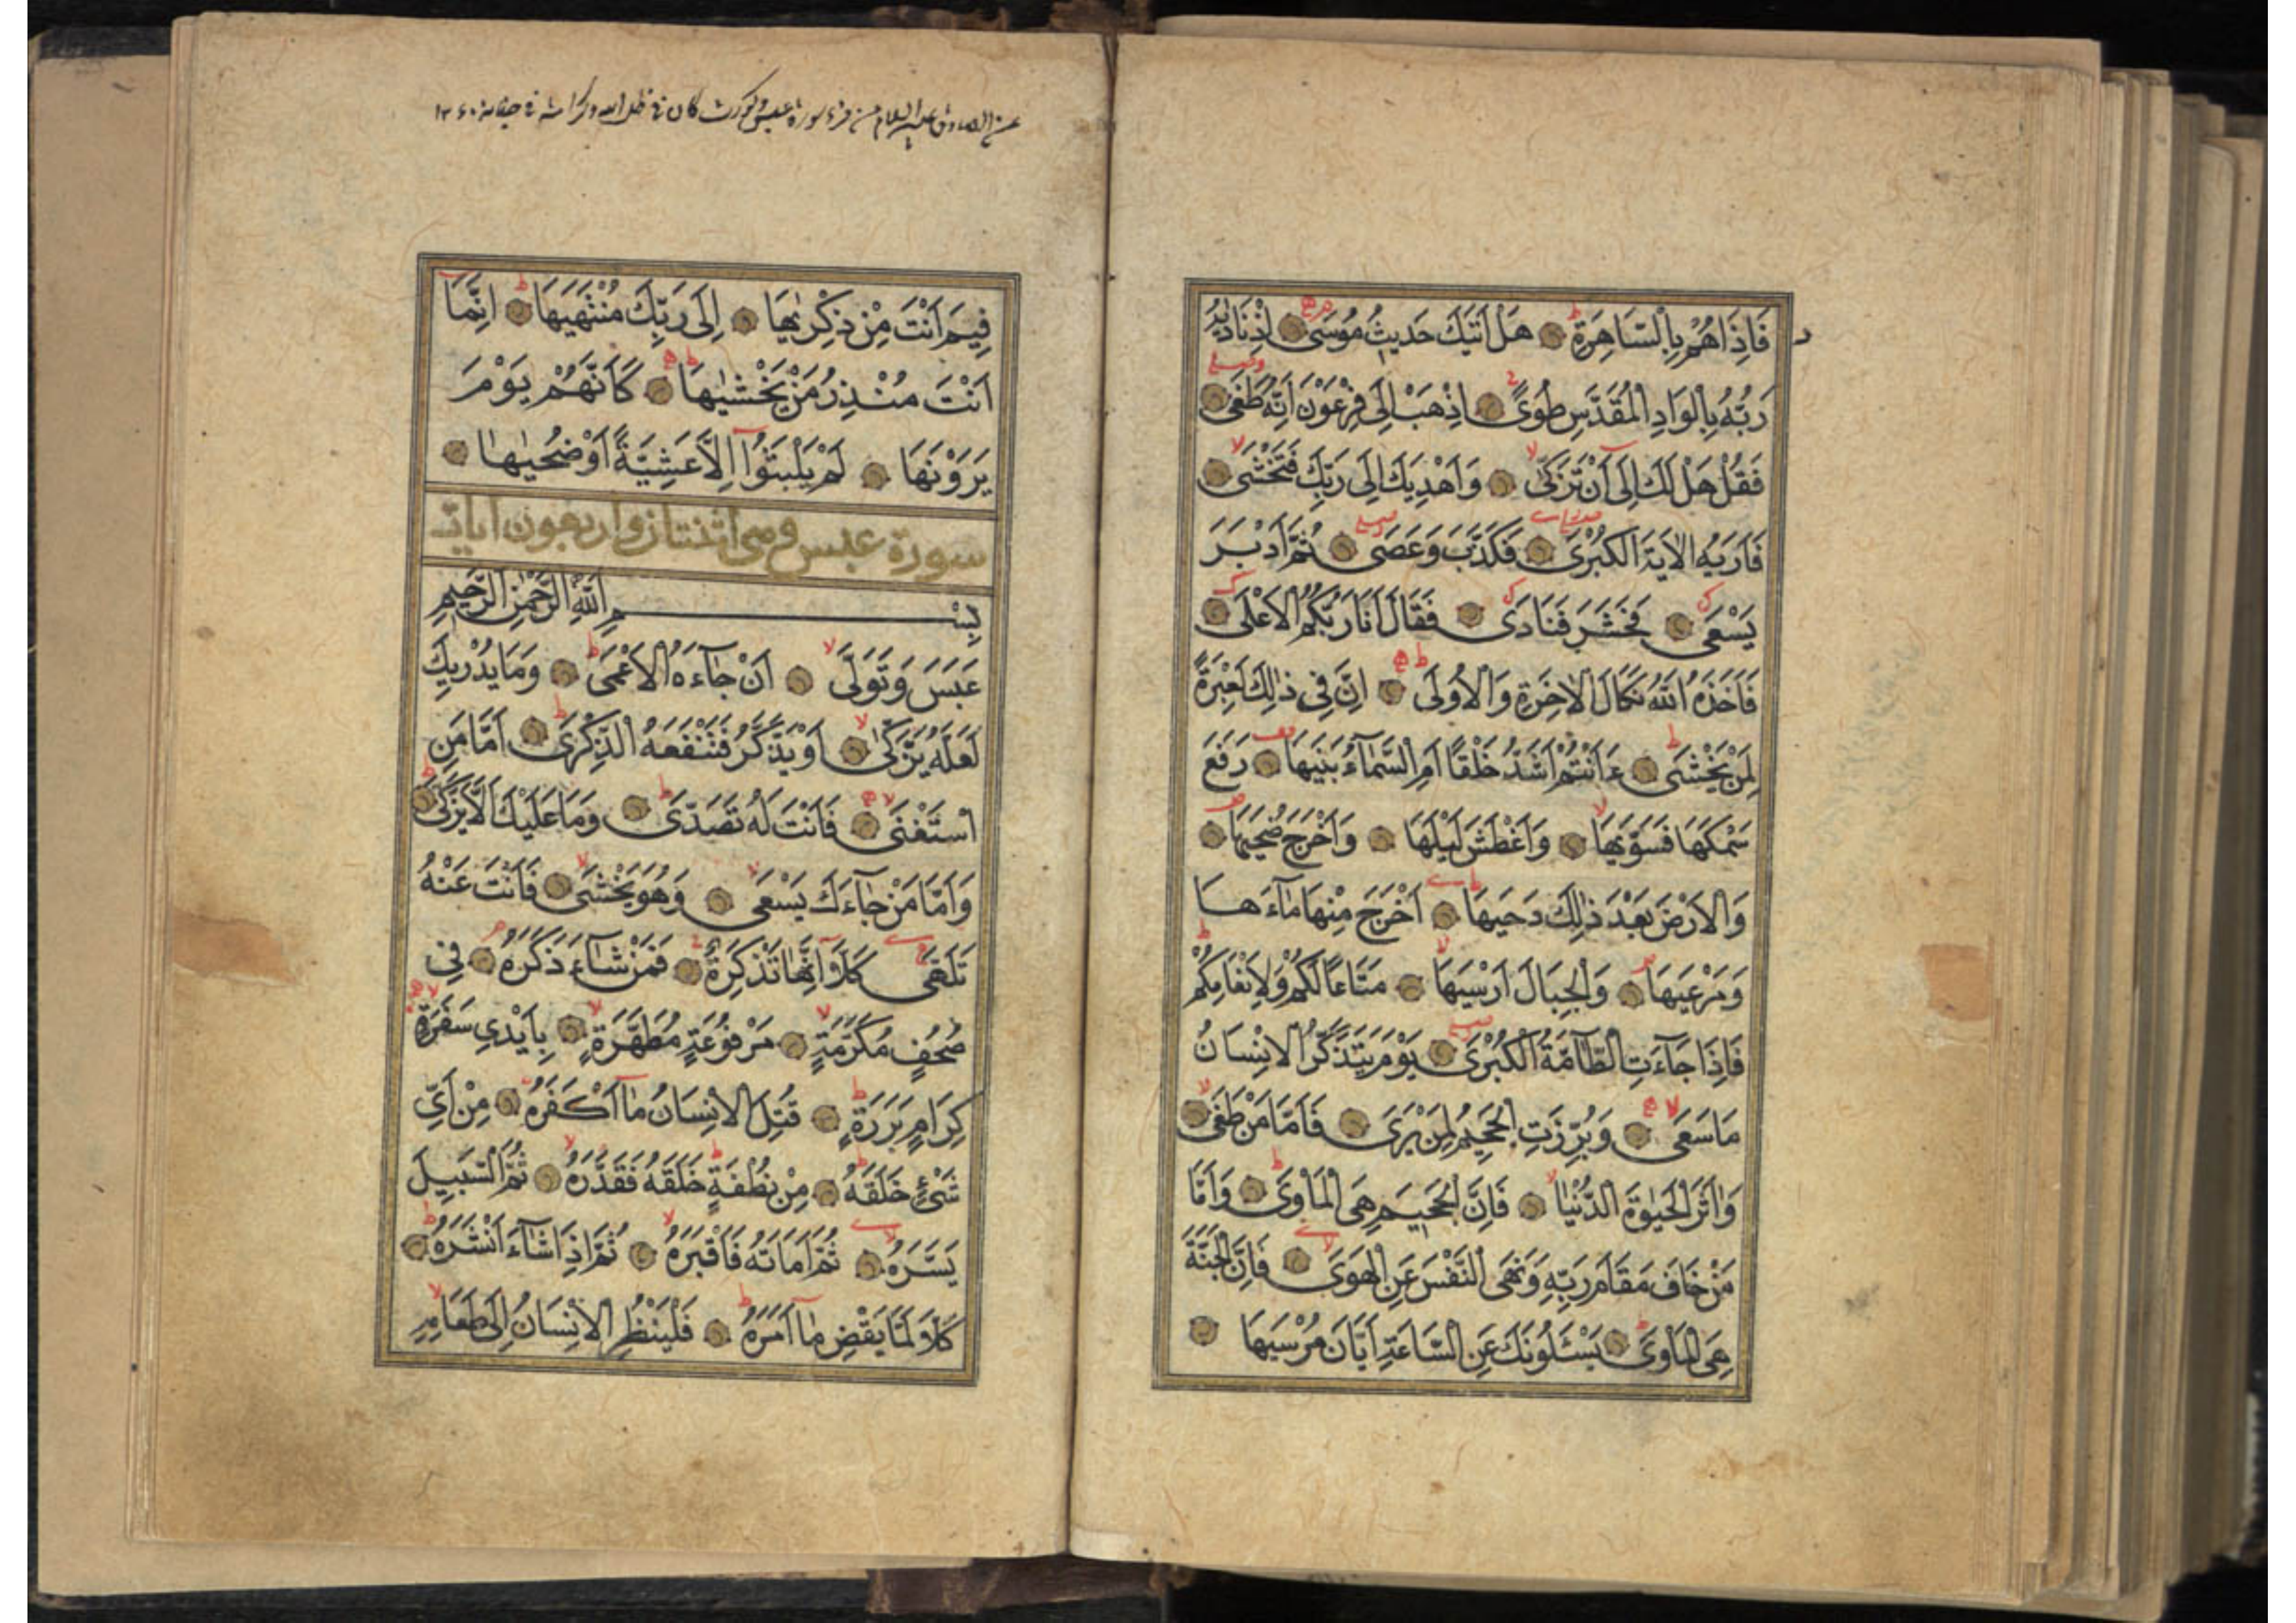 فَاِذَا هُمْ بِالسَّاهِرَةِ هَلْ اَتٰيكَ حَدِيثُ مُوسٰى اِذْ نَادٰيهُ
رَبُّهُ بِالْوَادِ الْمُقَدَّسِ طُوًى اِذْهَبْ اِلٰى فِرْعَوْنَ اِنَّهُ طَغٰى
فَقُلْ هَلْ لَكَ اِلٰى اَنْ تَزَكّٰى وَاَهْدِيَكَ اِلٰى رَبِّكَ فَتَخْشٰى
فَاَرٰيهُ الْاٰيَةَ الْكُبْرٰى فَكَذَّبَ وَعَصٰى ثُمَّ اَدْبَرَ
يَسْعٰى فَحَشَرَ فَنَادٰى فَقَالَ اَنَا رَبُّكُمُ الْاَعْلٰى
فَاَخَذَهُ اللّٰهُ نَكَالَ الْاٰخِرَةِ وَالْاُولٰى اِنَّ فِي ذٰلِكَ لَعِبْرَةً
لِمَنْ يَخْشٰى ءَاَنْتُمْ اَشَدُّ خَلْقًا اَمِ السَّمَاءُ بَنٰيهَا رَفَعَ
سَمْكَهَا فَسَوّٰيهَا وَاَغْطَشَ لَيْلَهَا وَاَخْرَجَ ضُحٰيهَا
وَالْاَرْضَ بَعْدَ ذٰلِكَ دَحٰيهَا اَخْرَجَ مِنْهَا مَاءَهَا
وَمَرْعٰيهَا وَالْجِبَالَ اَرْسٰيهَا مَتَاعًا لَكُمْ وَلِاَنْعَامِكُمْ
فَاِذَا جَاءَتِ الطَّامَّةُ الْكُبْرٰى يَوْمَ يَتَذَكَّرُ الْاِنْسَانُ
مَا سَعٰى وَبُرِّزَتِ الْجَحِيمُ لِمَنْ يَرٰى فَاَمَّا مَنْ طَغٰى
وَاٰثَرَ الْحَيٰوةَ الدُّنْيَا فَاِنَّ الْجَحِيمَ هِيَ الْمَاْوٰى وَاَمَّا
مَنْ خَافَ مَقَامَ رَبِّهِ وَنَهَى النَّفْسَ عَنِ الْهَوٰى فَاِنَّ الْجَنَّةَ
هِيَ الْمَاْوٰى يَسْئَلُونَكَ عَنِ السَّاعَةِ اَيَّانَ مُرْسٰيهَا
عن الصادق عليه السلام من قرء سورة عبس وكورت كان في ظل الله وكرامته في جنانه
فِيمَ اَنْتَ مِنْ ذِكْرٰيهَا اِلٰى رَبِّكَ مُنْتَهٰيهَا اِنَّمَا
اَنْتَ مُنْذِرُ مَنْ يَخْشٰيهَا كَاَنَّهُمْ يَوْمَ
يَرَوْنَهَا لَمْ يَلْبَثُوا اِلَّا عَشِيَّةً اَوْ ضُحٰيهَا
سورة عبس وهى اثنتان واربعون اية
بِسْمِ اللّٰهِ الرَّحْمٰنِ الرَّحِيمِ
عَبَسَ وَتَوَلّٰى اَنْ جَاءَهُ الْاَعْمٰى وَمَا يُدْرِيكَ
لَعَلَّهُ يَزَّكّٰى اَوْ يَذَّكَّرُ فَتَنْفَعَهُ الذِّكْرٰى اَمَّا مَنِ
اسْتَغْنٰى فَاَنْتَ لَهُ تَصَدّٰى وَمَا عَلَيْكَ اَلَّا يَزَّكّٰى
وَاَمَّا مَنْ جَاءَكَ يَسْعٰى وَهُوَ يَخْشٰى فَاَنْتَ عَنْهُ
تَلَهّٰى كَلَّا اِنَّهَا تَذْكِرَةٌ فَمَنْ شَاءَ ذَكَرَهُ فِي
صُحُفٍ مُكَرَّمَةٍ مَرْفُوعَةٍ مُطَهَّرَةٍ بِاَيْدِي سَفَرَةٍ
كِرَامٍ بَرَرَةٍ قُتِلَ الْاِنْسَانُ مَا اَكْفَرَهُ مِنْ اَيِّ
شَيْءٍ خَلَقَهُ مِنْ نُطْفَةٍ خَلَقَهُ فَقَدَّرَهُ ثُمَّ السَّبِيلَ
يَسَّرَهُ ثُمَّ اَمَاتَهُ فَاَقْبَرَهُ ثُمَّ اِذَا شَاءَ اَنْشَرَهُ
كَلَّا لَمَّا يَقْضِ مَا اَمَرَهُ فَلْيَنْظُرِ الْاِنْسَانُ اِلٰى طَعَامِهِ